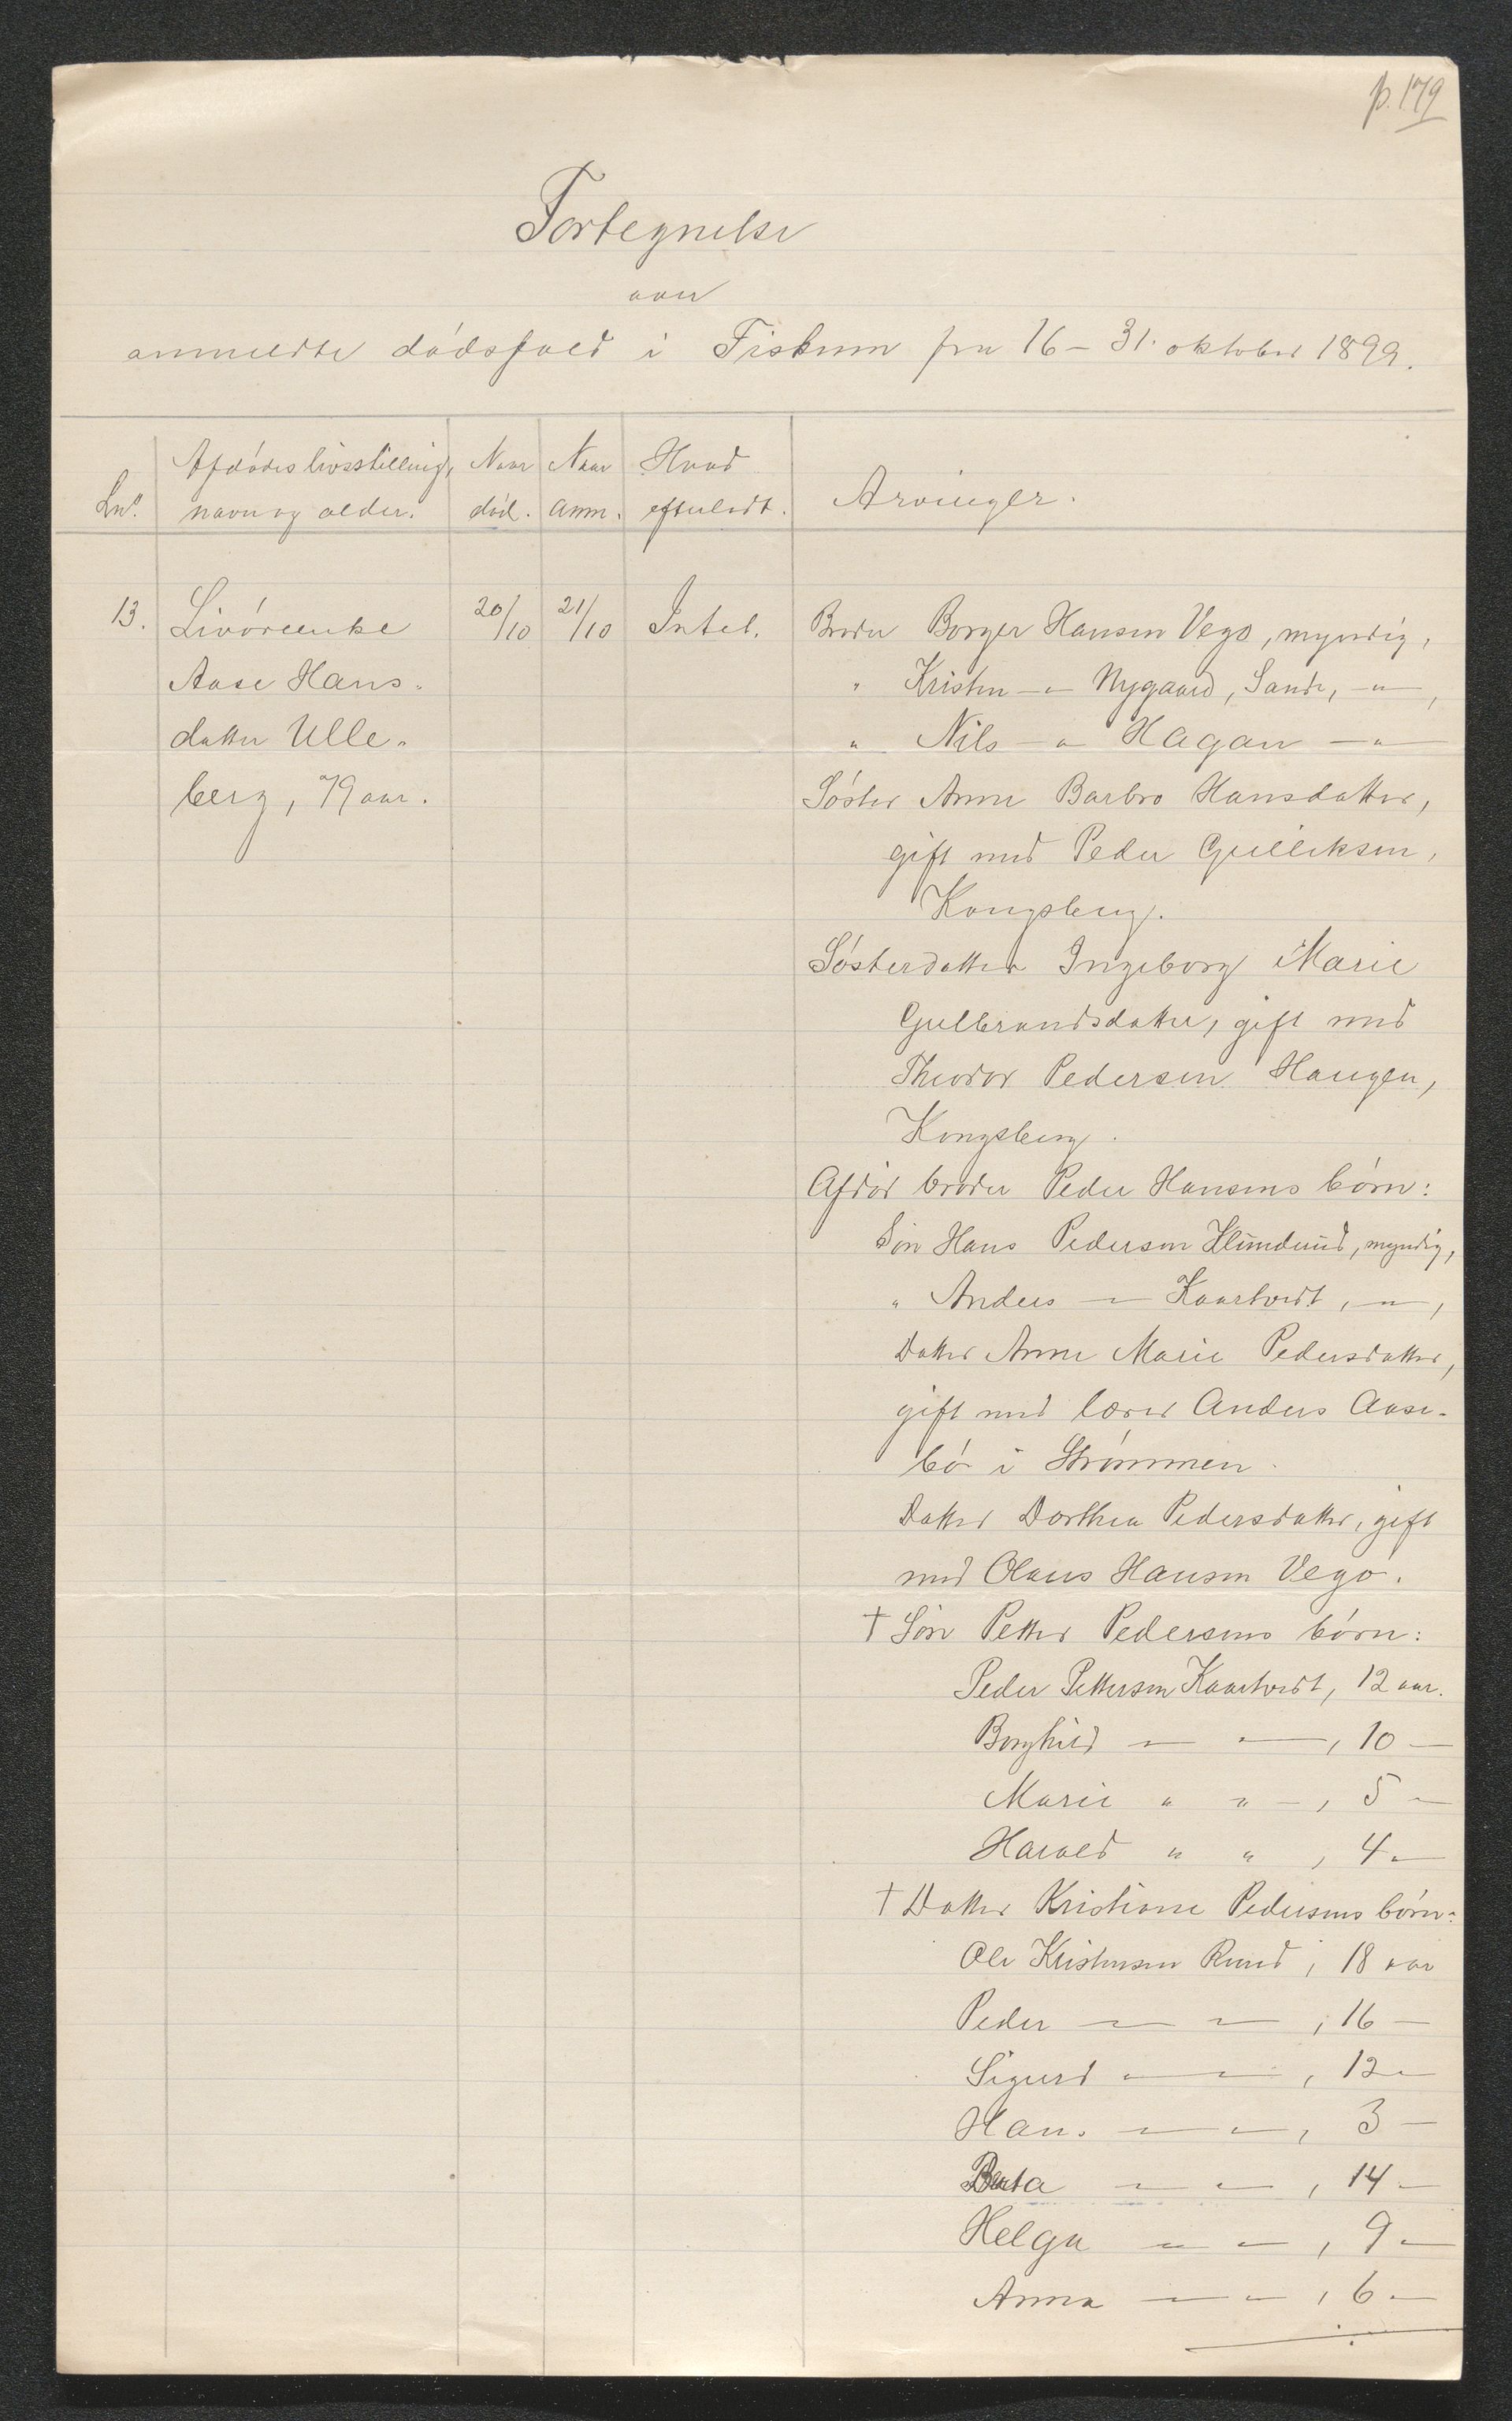 p. 179
Fortegnelse
over
anmeldte dödsfald i Fiskum fra 16 - 31. oktober 1899.
Lnº. Afdödes livsstilling, navn og alder. Naar död. Naar anm. Hvad efterladt. Arvinger.
13. Livöreenke 20/10 21/10 Intet. Broder Borger Hansen Vego, myndig,
Aase Hans- " Kristen -"- Nygaard, Sande, -"-,
datter Ulle- " Nils -"- Hagan -"-
berg, 79 aar. Söster Anne Barbro Hansdatter,
gift med Peder Gulliksen,
Kongsberg.
Sösterdatter Ingeborg Marie
Gulbrandsdatter, gift med
Theodor Pedersen Haugen,
Kongsberg.
Afdöd broder Peder Hansens börn:
Sön Hans Pedersen, myndig,
" Anders -"- Kaartvedt, -"-,
Datter Anne Marie Pedersdatter,
gift med lærer Anders Aase-
bö i Strömmen.
Datter Dorthea Pedersdatter, gift
med Olaus Hansen Vego.
† Sön Petter Pedersens börn:
Peder Pettersen Kaartvedt, 12 aar.
Borghild -"- -"-, 10 -
Marie " " -, 5 -
Harald " " , 4 -
† Datter Kristiane Pedersens börn:
Ole Kristensen Rund, 18 aar
Peder -"- -"-, 16 -
Sigurd -"- -"-, 12 -
Hans -"- -"-, 3 -
Berta -"- -"-, 14 -
Helga -"- -"-, 9 -
Anna -"- -"-, 6 -